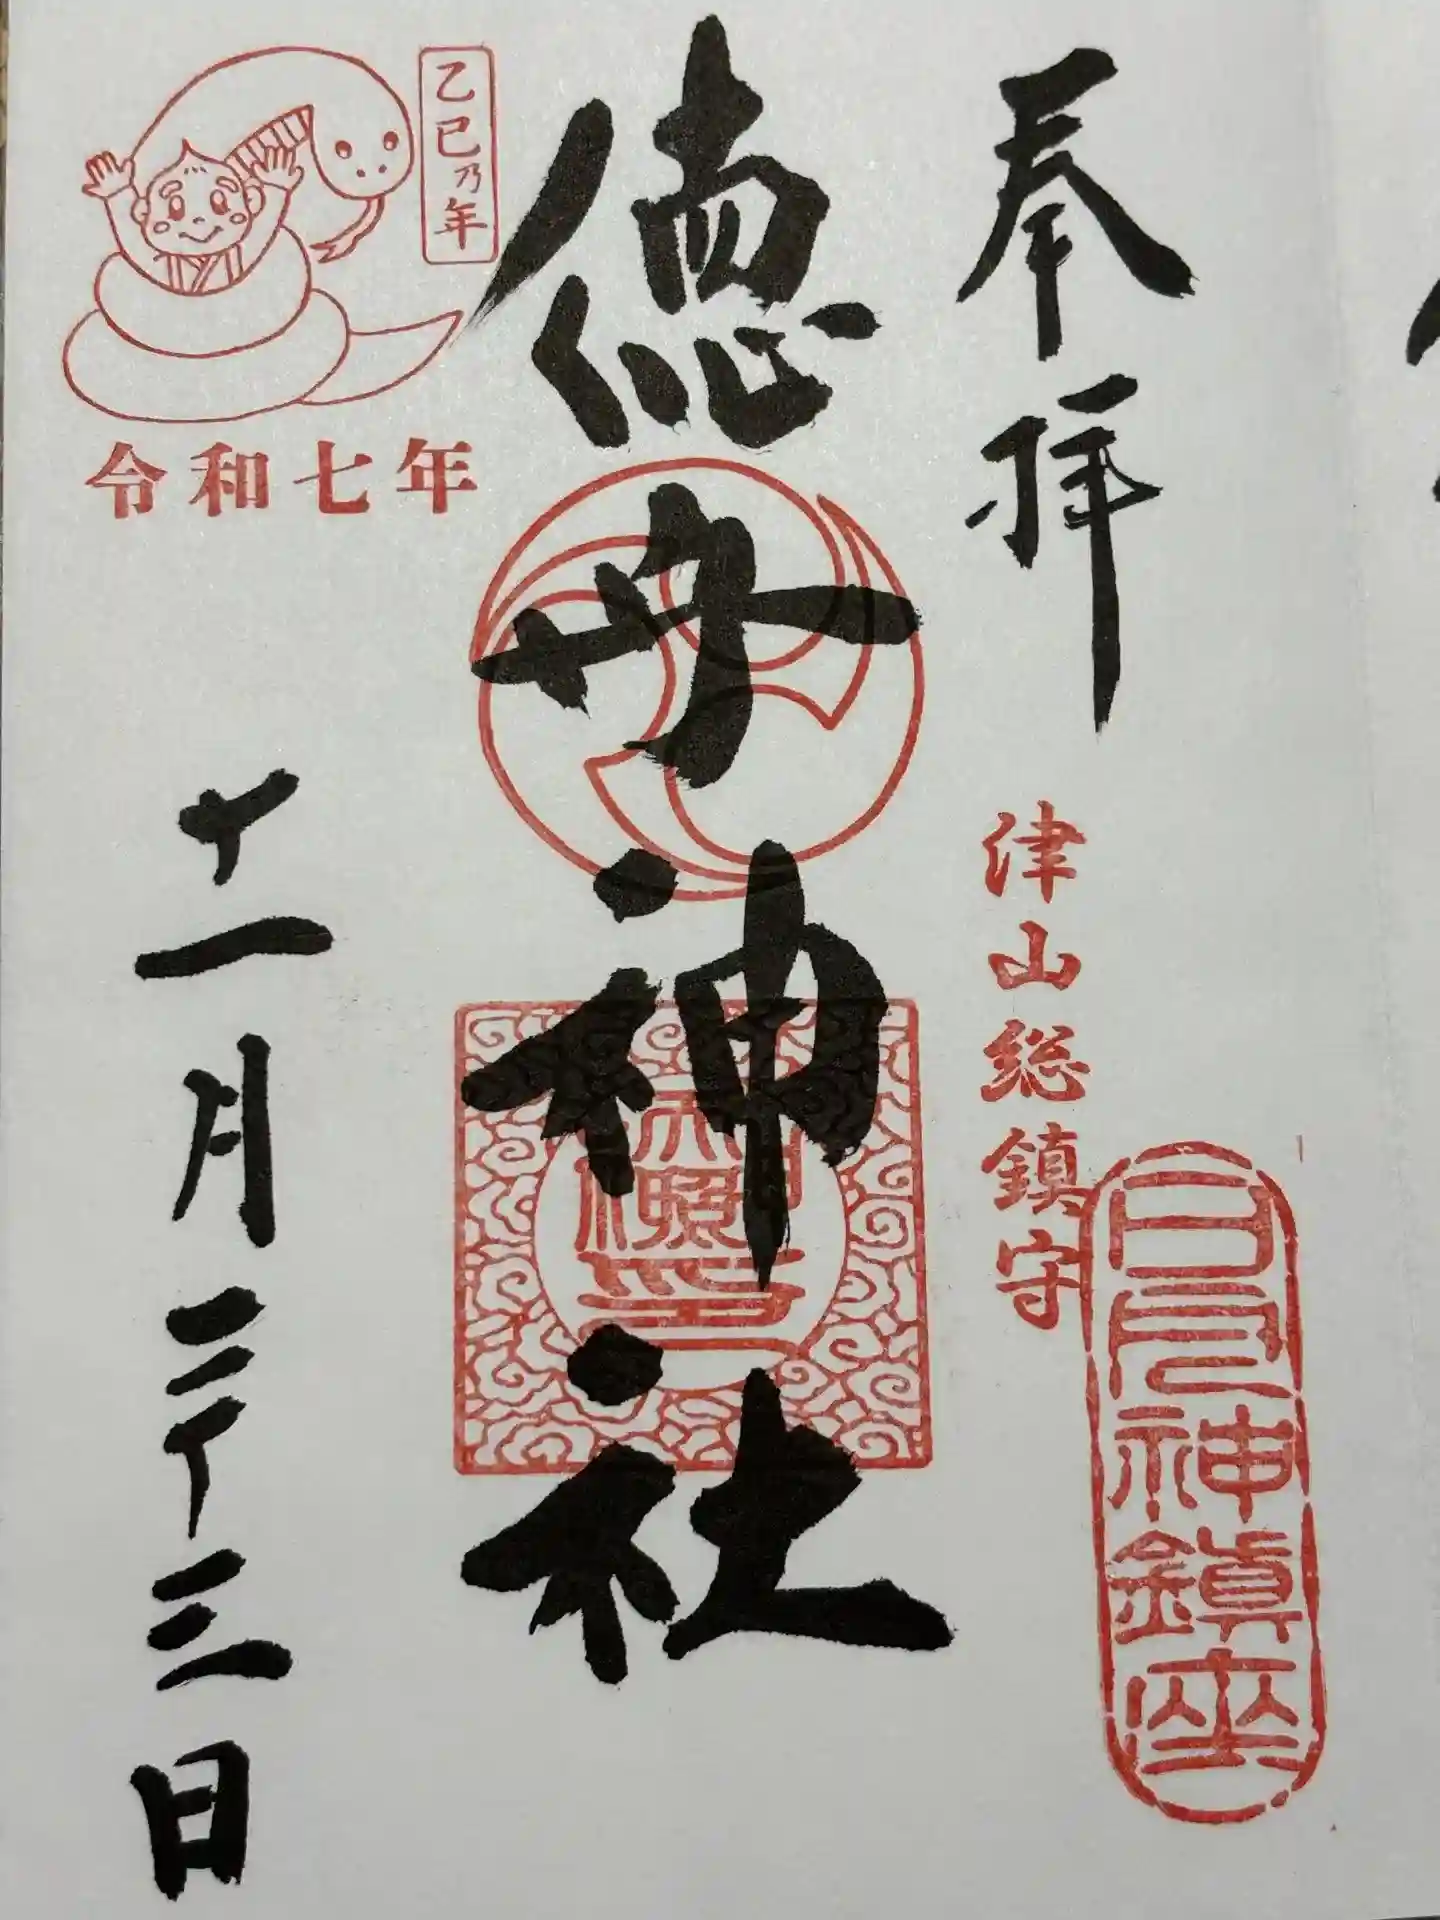 奉拝
津山総鎮守
神鎮座
徳守神社
乙巳乃年
令和七年
十一月二十三日